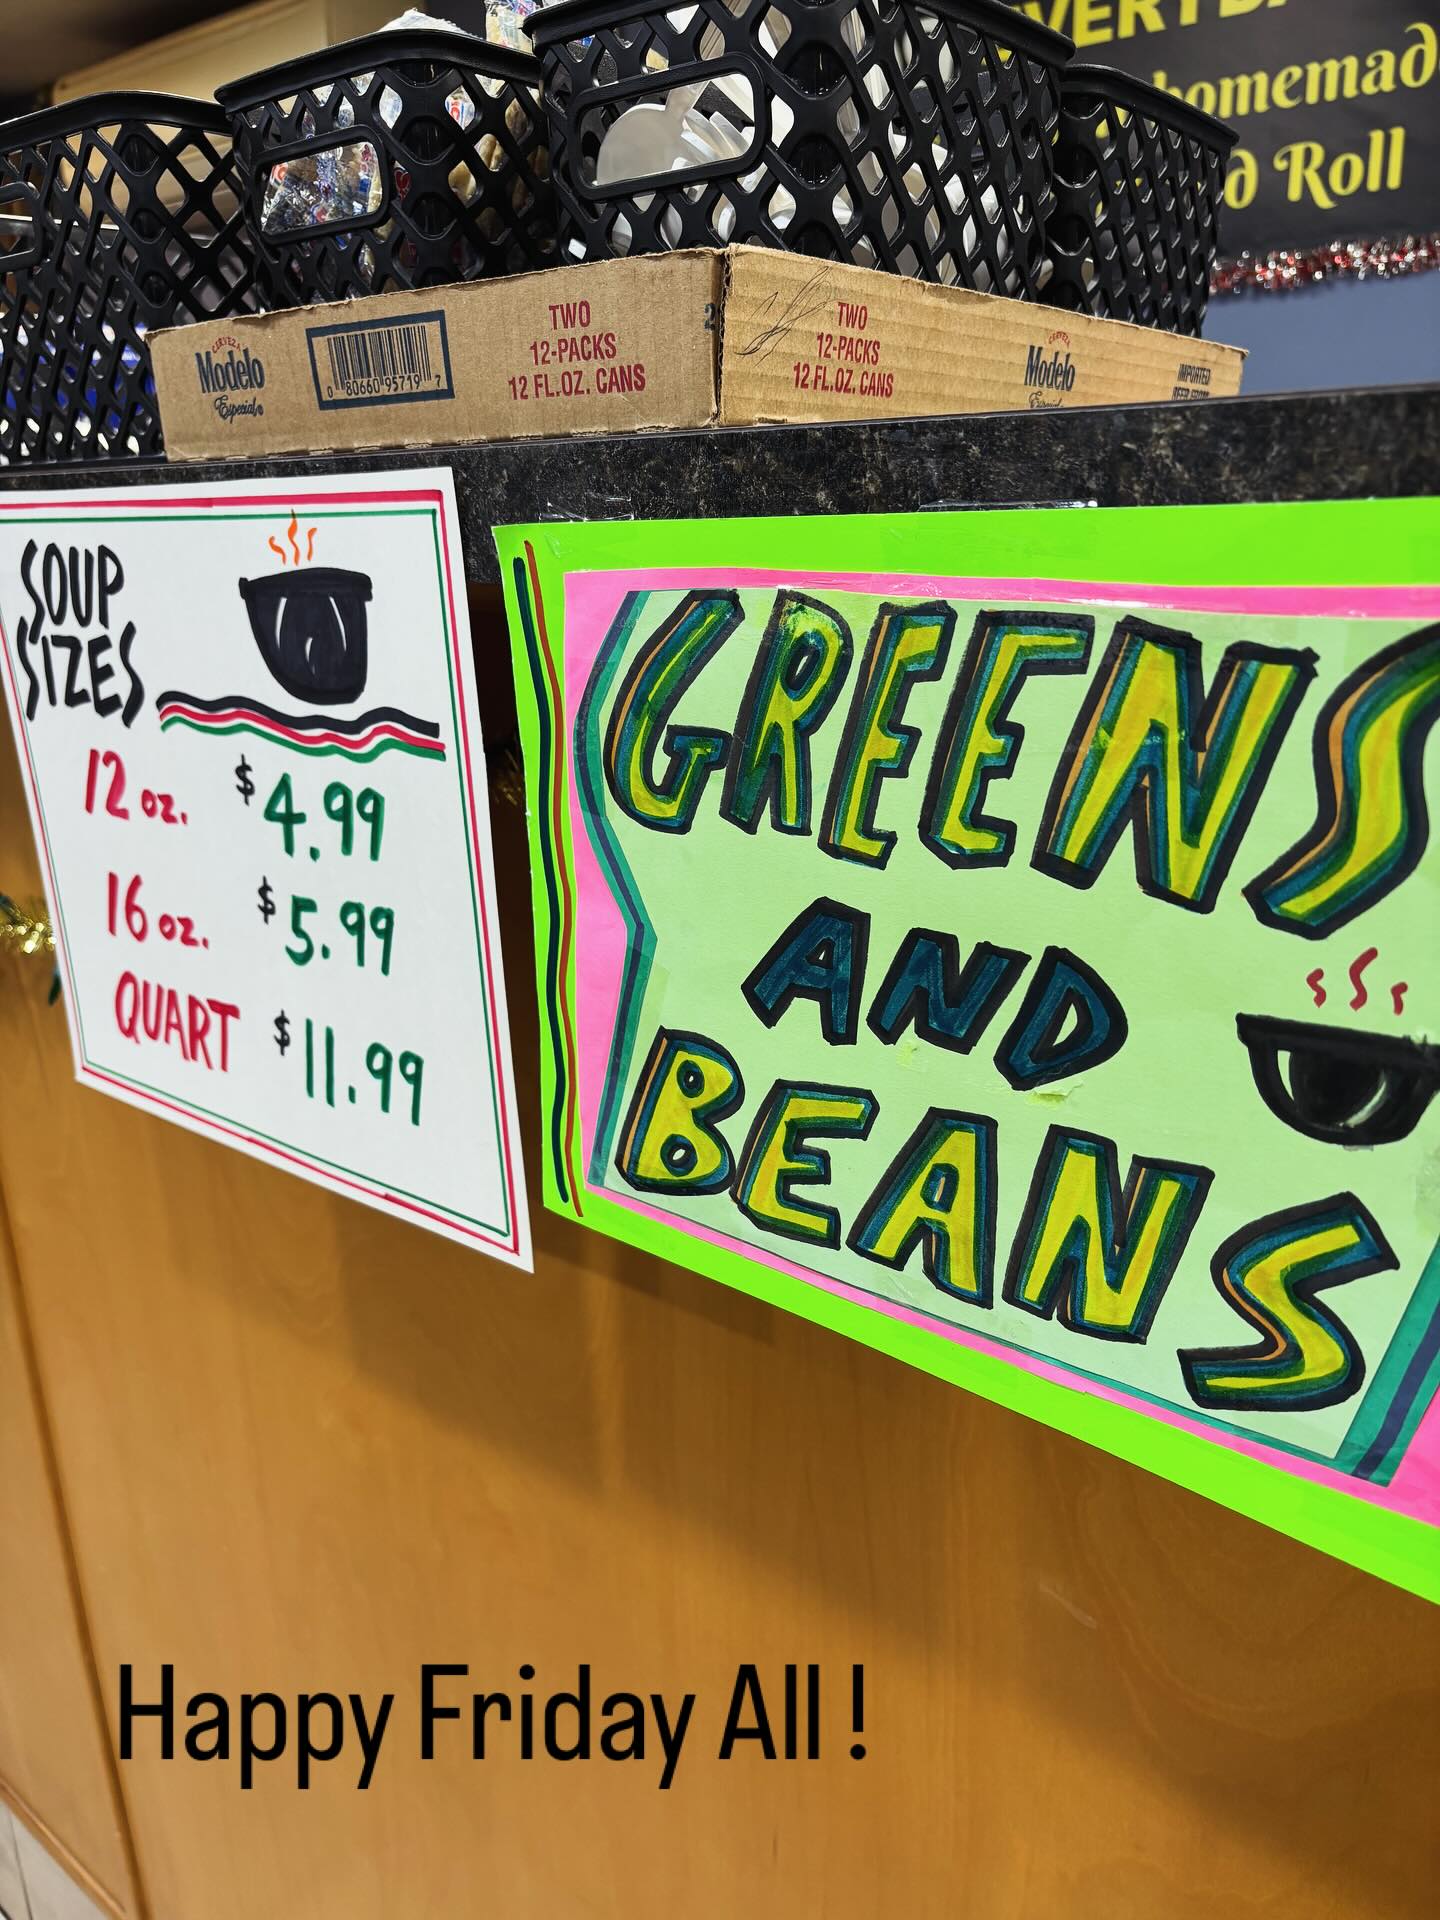 EVERYDA
homemad
d Roll
CERVEZA
Modelo
Especial
0 80660 95719 7
TWO
12-PACKS
12 FL.OZ. CANS
2
TWO
12-PACKS
12 FL.OZ. CANS
CERVEZA
Modelo
Especial
IMPORTED
BEER FROM
SOUP
SIZES
12 oz. $4.99
16 oz. $5.99
QUART $11.99
GREENS
AND
BEANS
Happy Friday All !